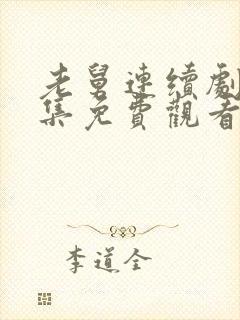 老舅連續劇
集免費觀看
李道全